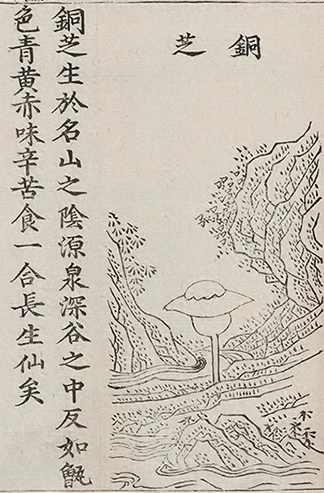 銅芝
銅芝生於名山之陰源泉深谷之中反如甑
色青黄赤味辛苦食一合長生仙矣